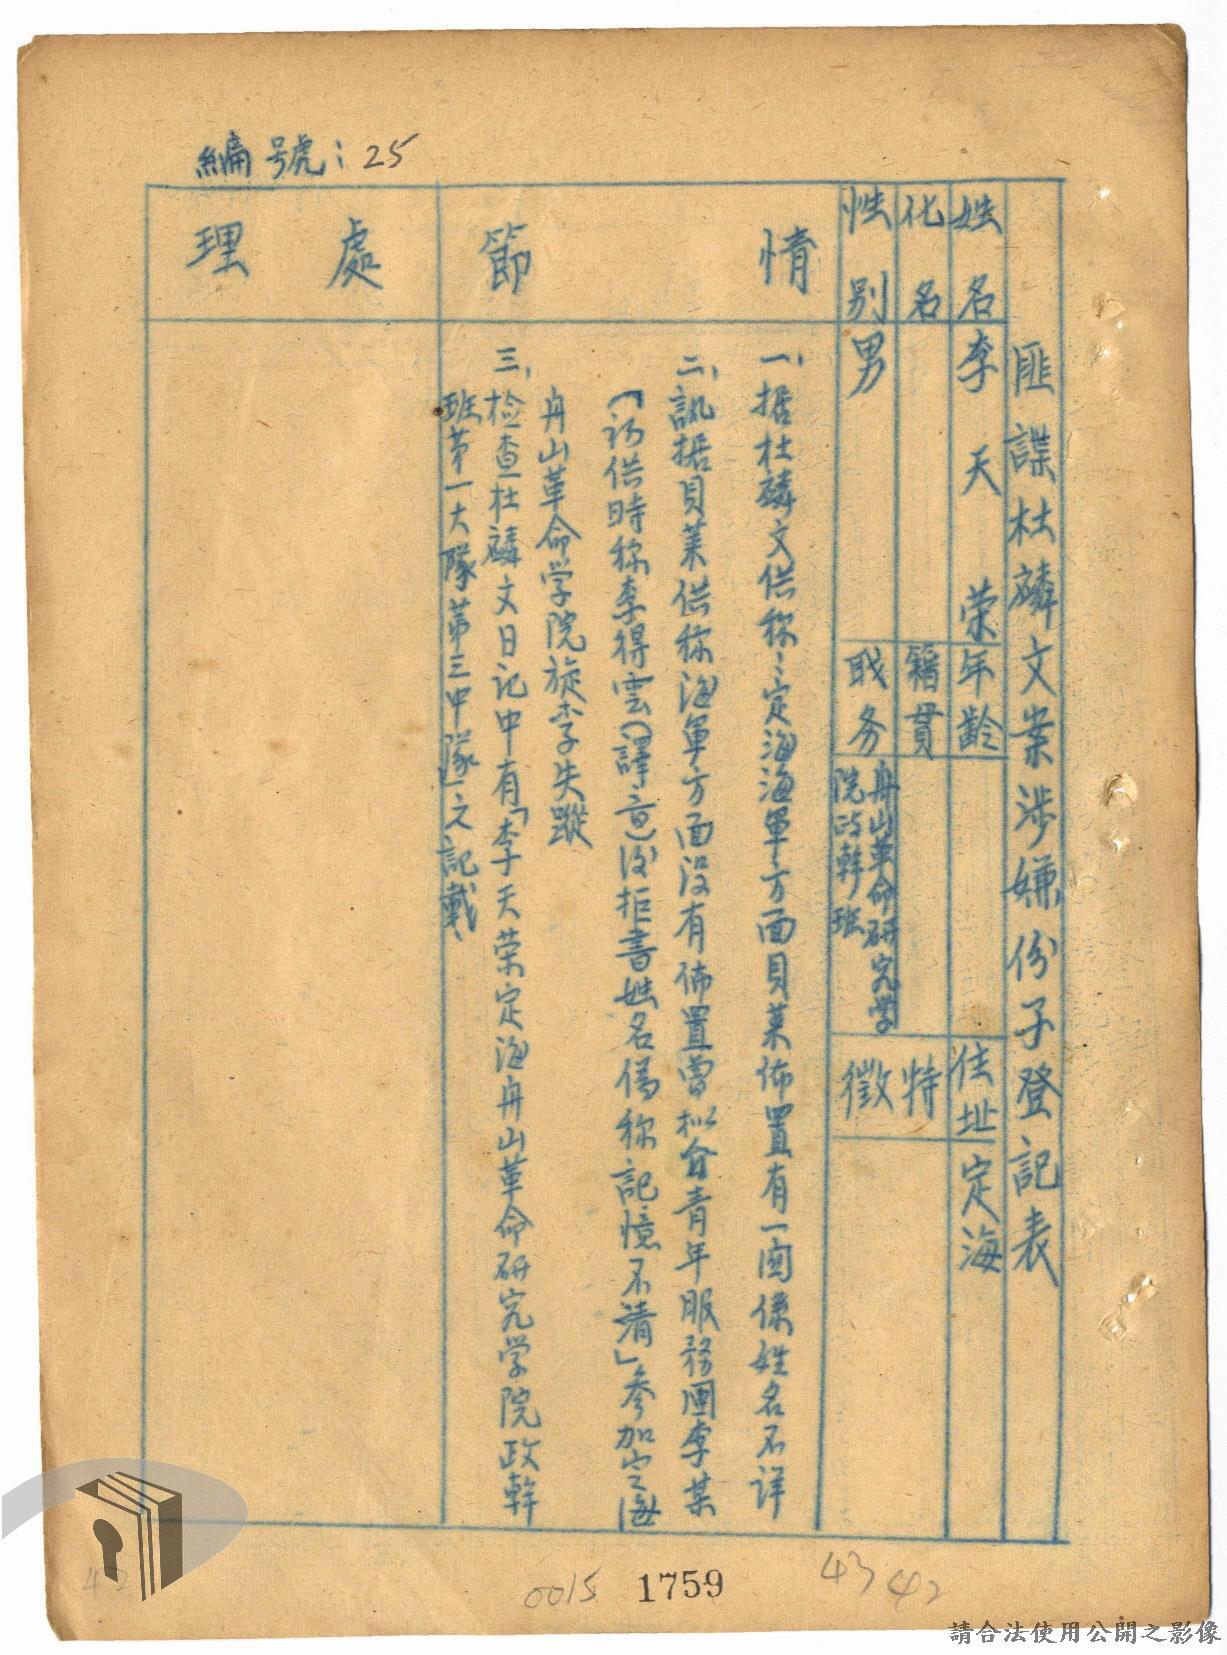 編號：25
匪諜杜麟文案涉嫌份子登記表
姓名 李天荣 年齡 住址 定海
化名 籍貫 特徵
性别 男 職务 舟山革命研究学院政幹班
情節
一、据杜麟文供称：定海海軍方面貝萊佈置有一関係姓名不详
二、訊据貝萊供称海軍方面沒有佈置曾拟介青年服務團李某
（初供時称李得雲（譯音）後拒書姓名僞称記憶不清」參加定海
舟山革命学院旋李失蹤
三、检查杜麟文日记中有「李天荣定海舟山革命研究学院政幹
班第一大隊第三中隊」之記載
處理
0015 1759 43 42
42
請合法使用公開之影像